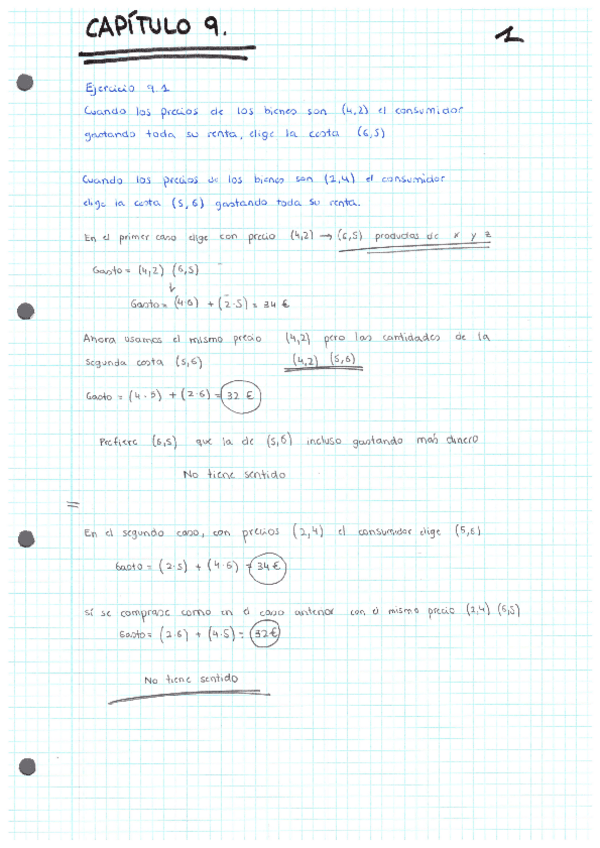 CAPÍTULO 9.
1
Ejercicio 9.1
Cuando los precios de los bienes son (4,2) el consumidor
gastando toda su renta, elige la cesta (6,5)
Cuando los precios de los bienes son (2,4) el consumidor
elige la cesta (5,6) gastando toda su renta.
En el primer caso elige con precio (4,2) → (6,5) productos de x y z
Gasto = (4,2) (6,5)
↓
Gasto = (4·6) + (2·5) = 34 €
Ahora usamos el mismo precio (4,2) pero las cantidades de la
segunda cesta (5,6) (4,2) (5,6)
Gasto = (4·5) + (2·6) = 32 €
Prefiere (6,5) que la de (5,6) incluso gastando más dinero
No tiene sentido
=
En el segundo caso, con precios (2,4) el consumidor elige (5,6)
Gasto = (2·5) + (4·6) = 34 €
Si se comprase como en el caso anterior con el mismo precio (2,4) (6,5)
Gasto = (2·6) + (4·5) = 32 €
No tiene sentido